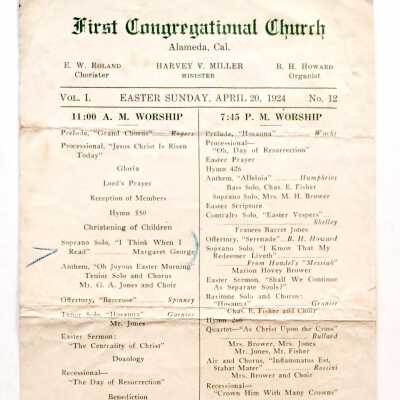 First Congregational Church
Alameda, Cal.
E. W. ROLAND
Chorister
HARVEY V. MILLER
MINISTER
B. H. HOWARD
Organist
VOL. I. EASTER SUNDAY, APRIL 20, 1924 No. 12
11:00 A. M. WORSHIP
Prelude, "Grand Chorus" Rogers
Processional, "Jesus Christ Is Risen
Today"
Gloria
Lord's Prayer
Reception of Members
Hymn 550
Christening of Children
Soprano Solo, "I Think When I
Read" Margaret George
Anthem, "Oh Joyous Easter Morning"
Tenior Solo and Chorus
Mr. G. A. Jones and Choir
Offertory, "Berceuse" Spinney
Tenor Solo, "Hosanna" Garnier
Mr. Jones
Easter Sermon:
"The Centrality of Christ"
Doxology
Recessional—
"The Day of Resurrection"
Benediction
7:45 P. M. WORSHIP
Prelude, "Hosanna" Wachs
Processional—
"Oh, Day of Resurrection"
Easter Prayer
Hymn 426
Anthem, "Alleluia" Humphries
Bass Solo, Chas. E. Fisher
Soprano Solo, Mrs. M. H. Brower
Easter Scripture
Contralto Solo, "Easter Vespers"
Shelley
Frances Barret Jones
Offertory, "Serenade" B. H. Howard
Soprano Solo, "I Know That My
Redeemer Liveth"
From Handel's "Messiah"
Marion Hovey Brower
Easter Sermon, "Shall We Continue
As Separate Souls?"
Baritone Solo and Chorus:
"Hosanna" Granier
Chas. E. Fisher and Choir
Hymn 260
Quartet—"As Christ Upon the Cross"
Bullard
Mrs. Brower, Mrs. Jones
Mr. Jones, Mr. Fisher
Air and Chorus, "Inflammatus Est,
Stabat Mater" Rossini
Mrs. Brower and Choir
Recessional—
"Crown Him With Many Crowns"